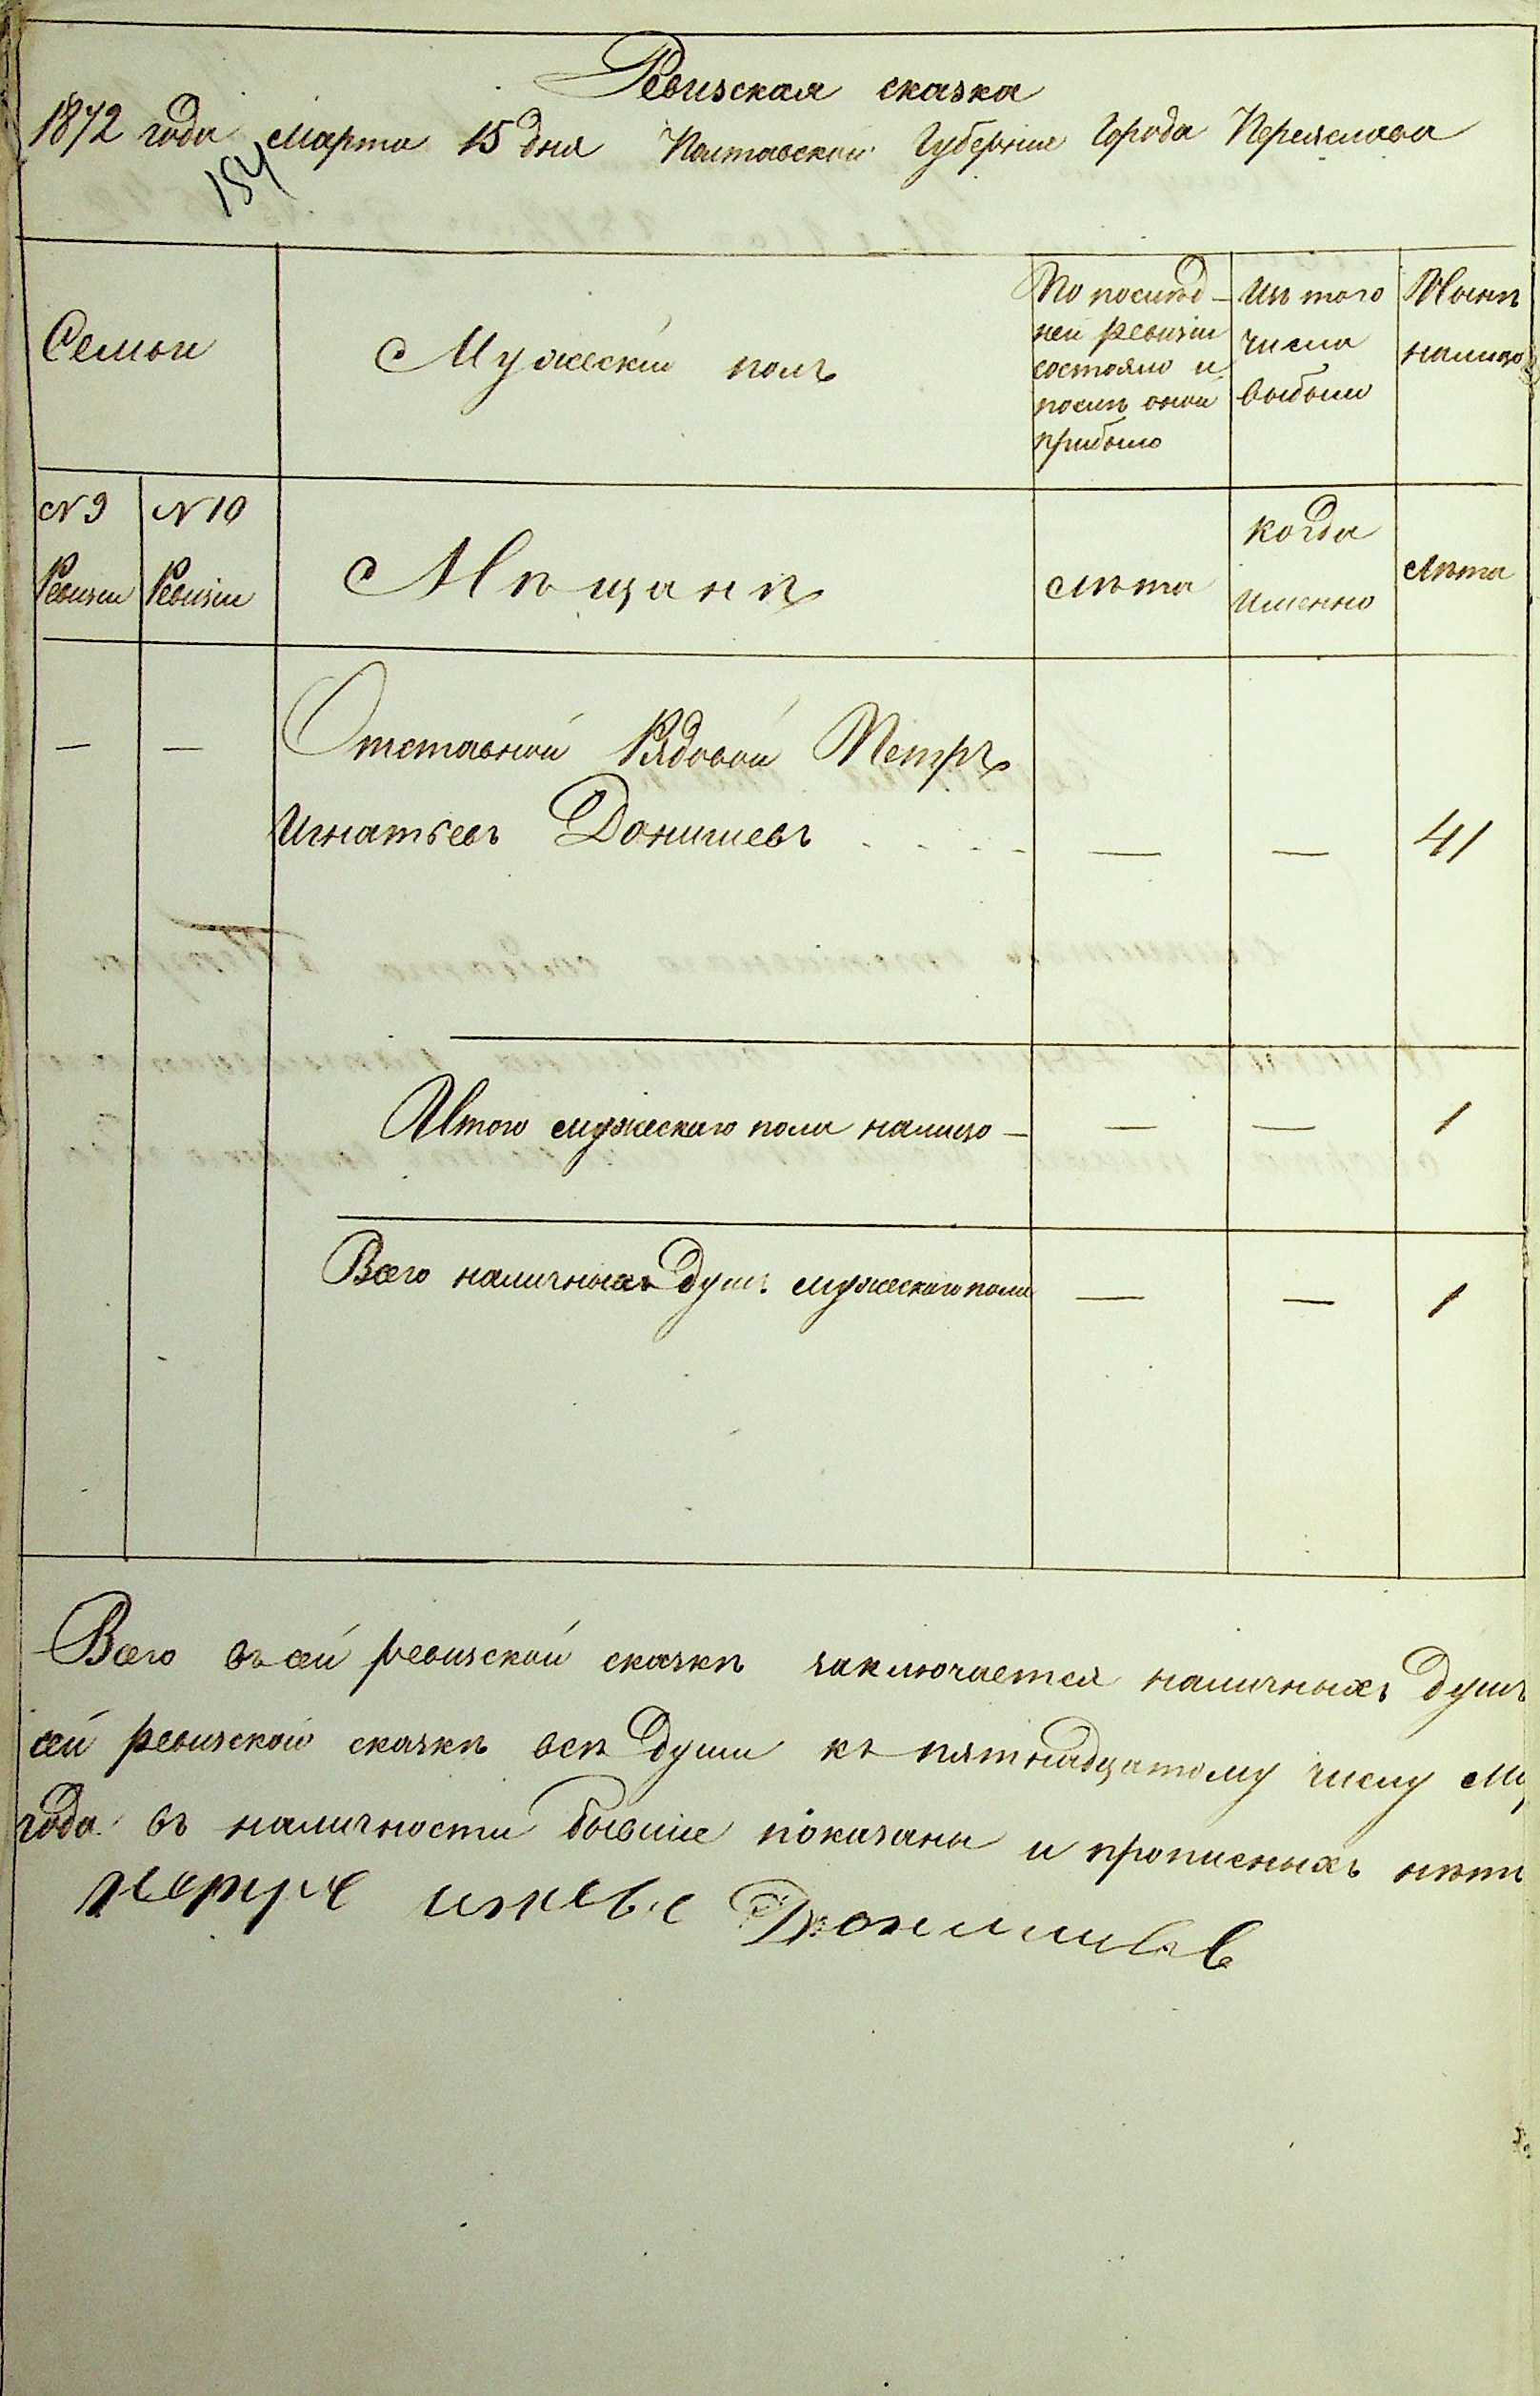 Ревизская сказка
1872 года Марта 15 дня Полтавской Губерніи Города Переяслава
184
Семьи
Мужескій полъ
По послѣд-
ней ревизіи
состояло и
послѣ оной
прибыло
Изъ того
числа
выбыли
Нынѣ
налицо
N 9
Ревизіи
N 10
Ревизіи
Мѣщанѣ
Лѣта
Когда
Именно
Лѣта
— — Отставной Рядовой Петръ
Игнатьевъ Донишевъ . . . . — — 41
Итого мужескаго пола налицо — — — 1
Всего наличныхъ душъ мужескаго пола — — 1
Всего въ сей ревизской сказкѣ заключается наличныхъ душъ
сей ревизской сказкѣ всѣ души къ пятнадцатому числу М
года въ наличности бывшіе показаны и прописныхъ нѣтъ